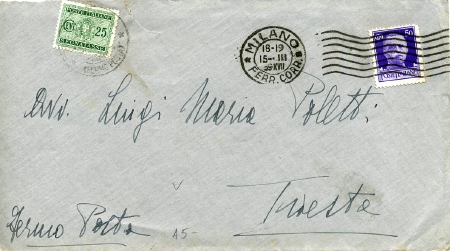 POSTE ITALIANE
25
SEGNATASSE
MILANO
18-19
15-III
XVII
FERR. CORR.
50
Avv. Luigi Maria Poletti
Trieste
Fermo Posta